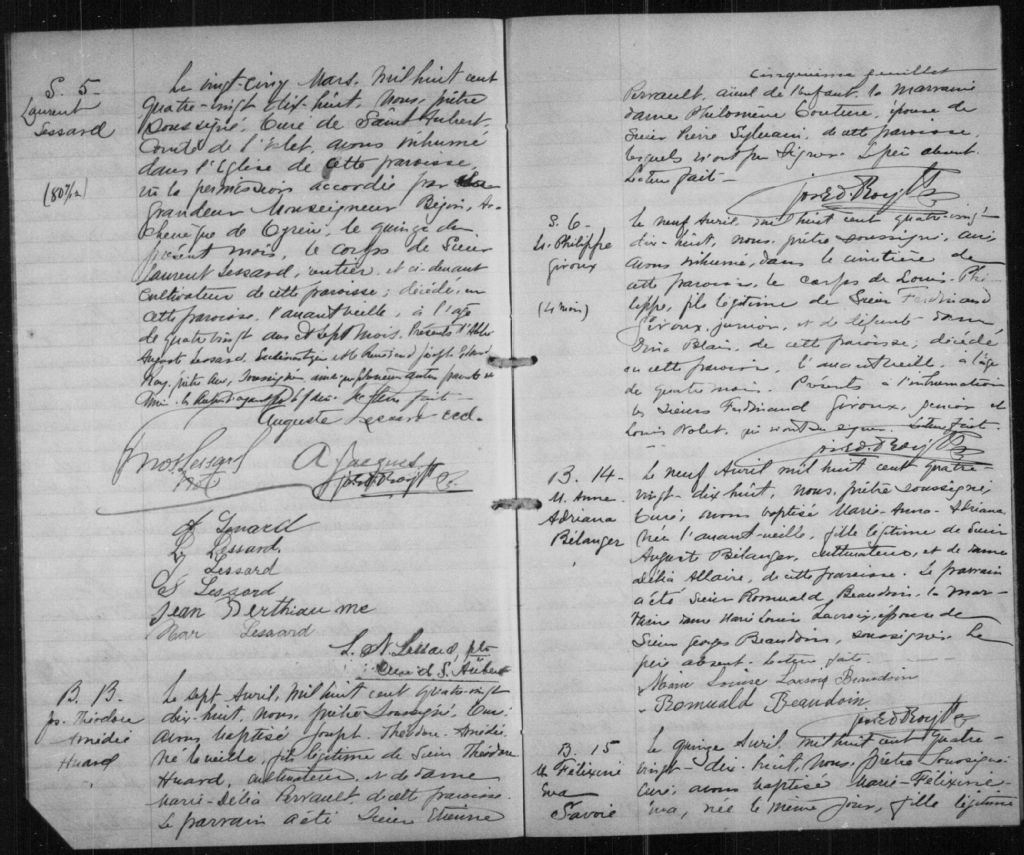 S. 5-
Laurent
Lessard
(80 7/12)
Le vingt-cinq Mars, mil huit cent
quatre-vingt dix-huit, Nous, prêtre
soussigné, Curé de Saint Aubert,
Comté de l'Islet, avons inhumé
dans l'Eglise de cette paroisse,
vu la permission accordée par Sa
Grandeur Monseigneur Bégin, Ar-
chevêque de Cyrène, le quinze du
présent mois, le corps de Sieur
Laurent Lessard, rentier et ci-devant
cultivateur de cette paroisse; décédé en
cette paroisse, l'avant veille, à l'âge
de quatre vingt ans et sept mois. Présents l'Abbé
Auguste Lessard, Ecclésiastique et Révérend Joseph Edouard
Roy, prêtre Curé, soussignés ainsi que plusieurs autres parents et
amis. Lecture faite
Auguste Lessard ecc.
Lessard
A Jacques
Jos. Ed. Roy Ptre
Lessard
L Lessard
Lessard
G Lessard
Jean Berthiaume
Lessard
L. N. Lessard, ptre
Curé de S. Aubert
B. 13.
Jos. Théodore
Amédée
Huard
Le sept Avril, mil huit cent quatre-vingt
dix-huit, nous, prêtre soussigné, Curé,
avons baptisé Joseph-Théodore-Amédée,
né la veille, fils légitime de Sieur Théodore
Huard, cultivateur, et de dame
Marie-Délia Perrault, de cette paroisse.
Le parrain a été Sieur Etienne
cinquième feuillet
Perrault, aïeul de l'enfant, la marraine
dame Philomène Couture, épouse de
Sieur Pierre Sylvain, de cette paroisse,
lesquels n'ont pu signer. Le père absent.
Lecture faite -
Jos. Ed. Roy Ptre
S. 6-
Ls. Philippe
Giroux
(4 mois)
Le neuf Avril, mil huit cent quatre-vingt
dix-huit, nous, prêtre soussigné, curé,
avons inhumé, dans le cimetière de
cette paroisse, le corps de Louis-Phi-
lippe, fils légitime de Sieur Ferdinand
Giroux, junior, et de défunte dame
Blais, de cette paroisse; décédé
en cette paroisse, l'avant veille, à l'âge
de quatre mois. Présents à l'inhumation
les Sieurs Ferdinand Giroux, junior et
Louis Nolet, qui n'ont pu signer. Lecture faite.
Jos. Ed. Roy Ptre
B. 14-
M. Anna
Adriana
Bélanger
Le neuf Avril mil huit cent quatre-
vingt-dix huit, nous, prêtre soussigné,
Curé, avons baptisé Marie-Anna-Adriana,
née l'avant-veille, fille légitime de Sieur
August Bélanger, cultivateur, et de dame
Délia Allaire, de cette paroisse. Le parrain
a été Sieur Romuald Beaudoin, la mar-
raine dame Marie Louise Lacroix, épouse de
Sieur Georges Beaudoin, soussignés. Le
père absent. Lecture faite.
Marie Louise Lacroix Beaudoin
Romuald Beaudoin
Jos Ed Roy Ptre
B. 15
M Félixine
Eva
Savoie
Le quinze Avril, mil huit cent quatre-
vingt-dix-huit, Nous, prêtre soussigné
curé, avons baptisé Marie-Félixine-
Eva, née le même jour, fille légitime